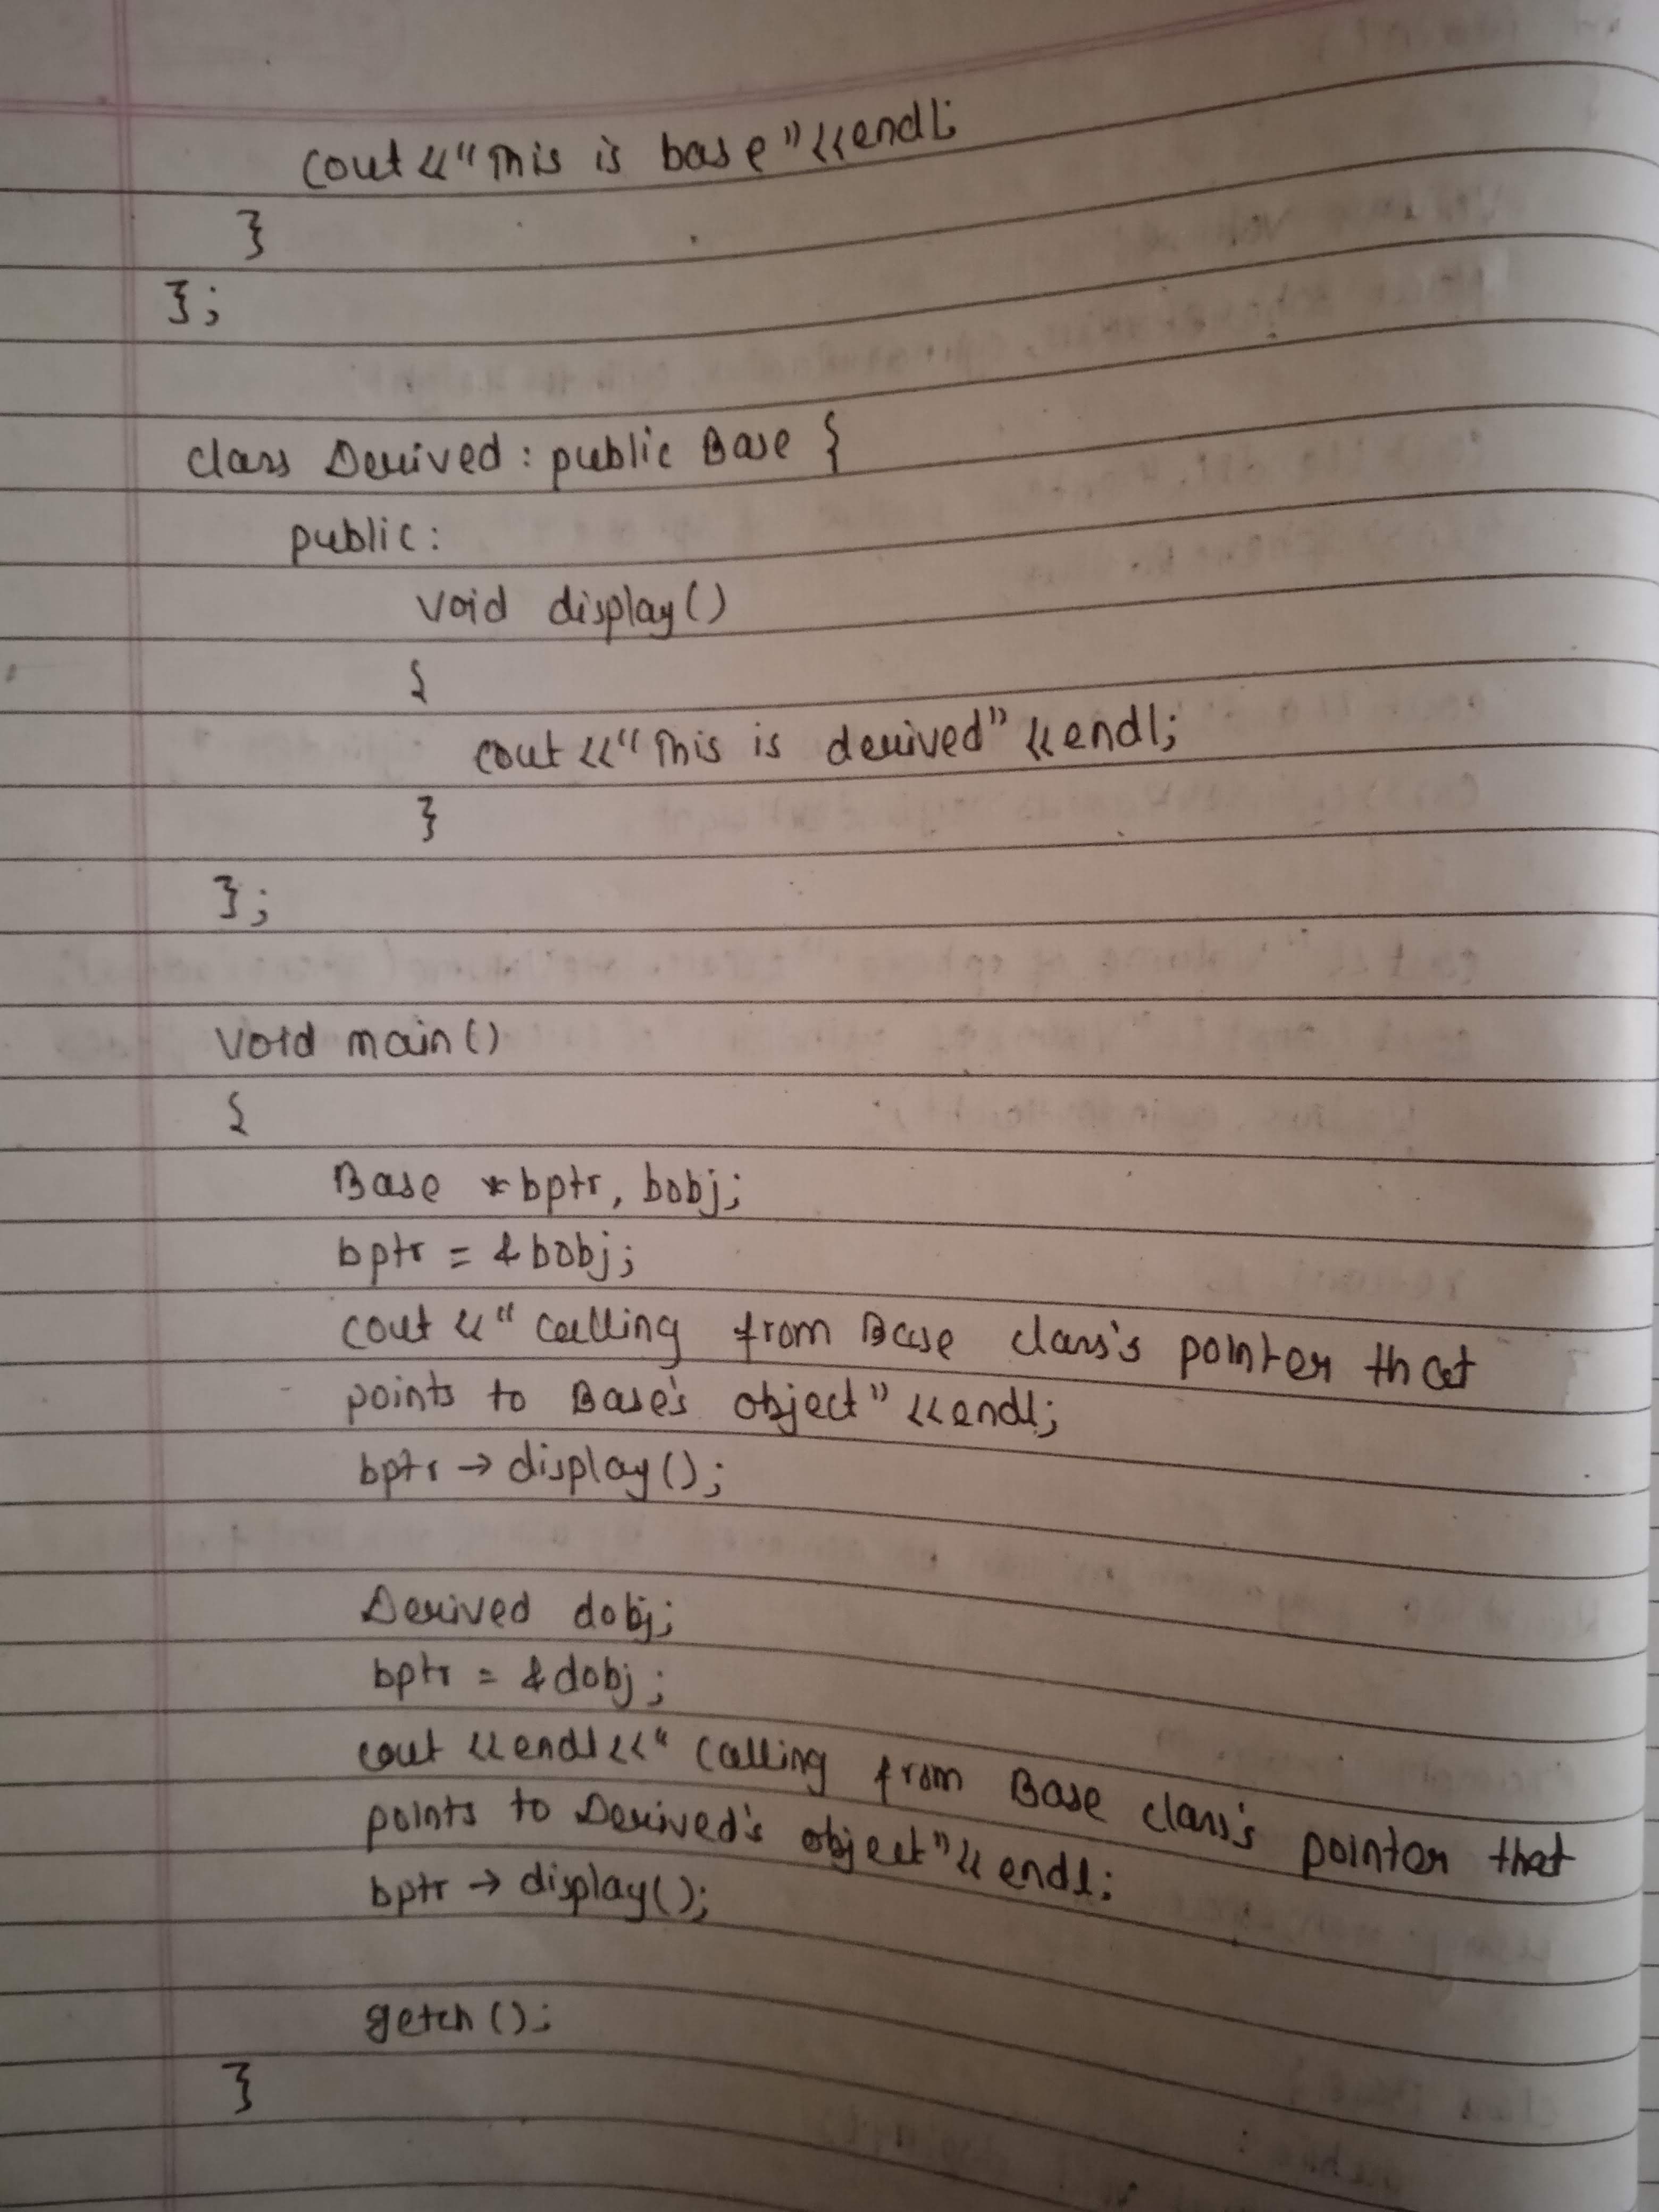 cout<<"This is base"<<endl;
}
};
class Derived : public Base {
public:
void display()
{
cout<<"This is derived"<<endl;
}
};
void main()
{
Base *bptr, bobj;
bptr = &bobj;
cout<<"Calling from Base class's pointer that
points to Base's object"<<endl;
bptr → display();
Derived dobj;
bptr = &dobj;
cout<<endl<<"Calling from Base class's pointer that
points to Derived's object"<<endl;
bptr → display();
getch();
}